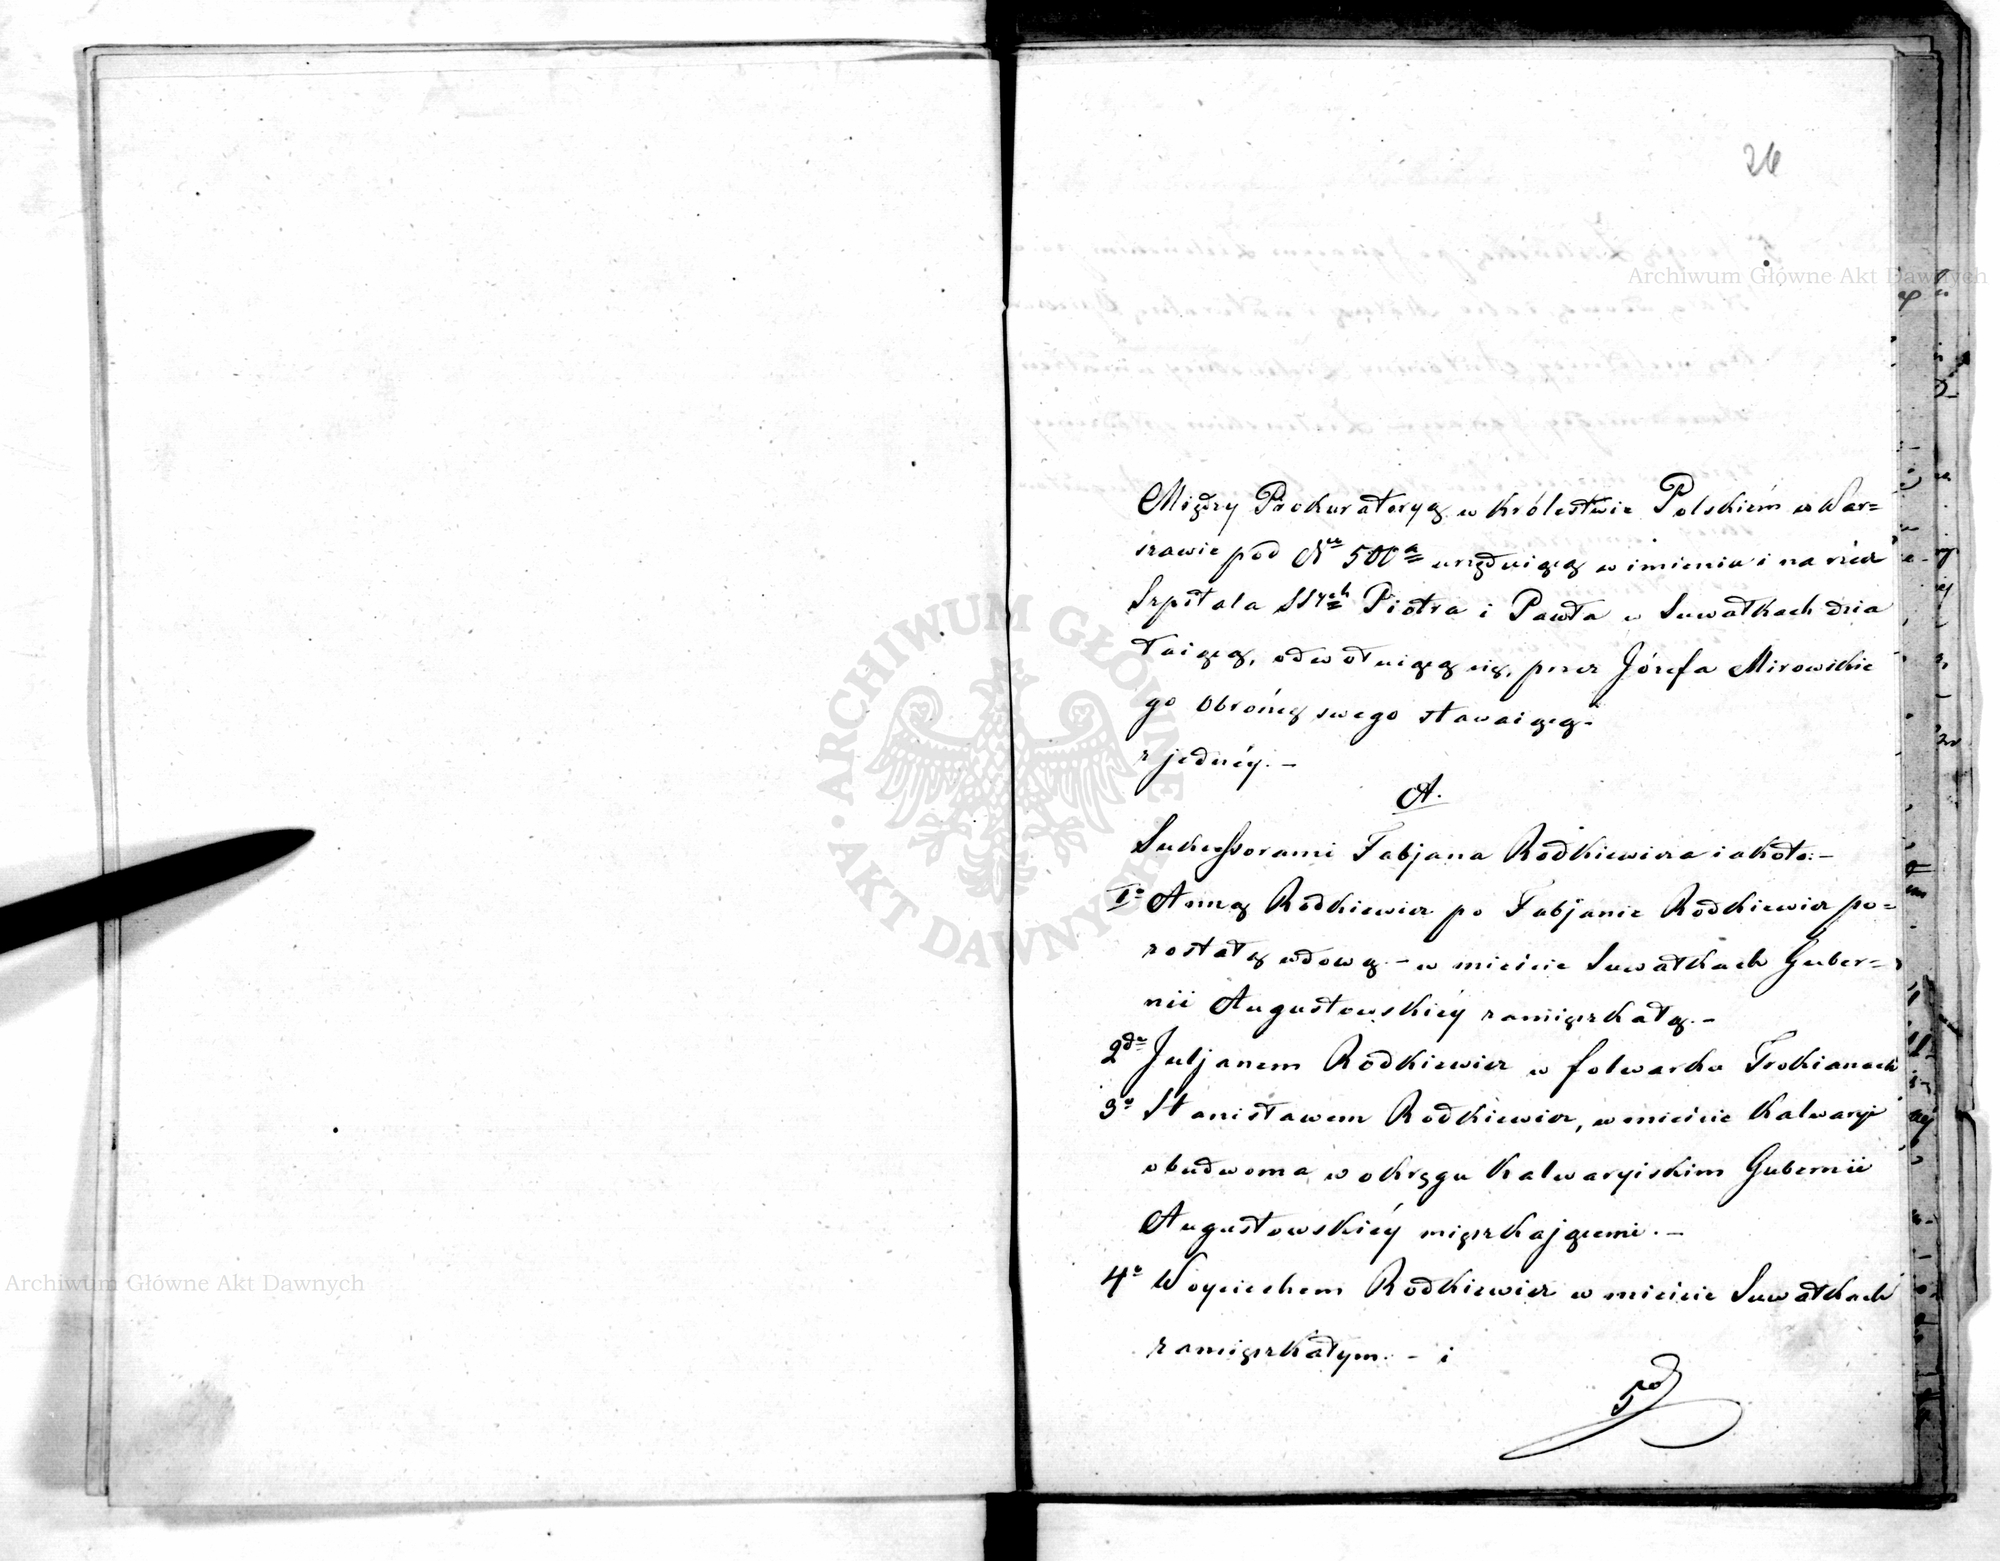 26
Archiwum Główne Akt Dawnych
Między Prokuratoryą w Królestwie Polskiém w War=
szawie pod Nr 500a urzęduiącą w imieniu i na rzecz
Szpitala SStych Piotra i Pawła w Suwałkach dzia
łaiącą, odwołuiącą się, przez Józefa Mirowskie
go Obrońcę swego stawaiącą.-
z jednéy.-
A.
Sukcessorami Fabjana Rodkiewicza iakoto:-
1o Anną Rodkiewicz po Fabjanie Rodkiewicz po=
zostałą wdową.- w mieście Suwałkach Guber=
nii Augustowskiéy zamięszkałą.-
2do Juljanem Rodkiewicz w folwarku Trokianach
3o Stanisławem Rodkiewicz, w mieście Kalwaryi
obudwoma w okręgu Kalwaryiskim Gubernii
Augustowskiéy mięszkającemi.-
4o Woyciechem Rodkiewicz w mieście Suwałkach
zamięszkałym.- i
ARCHIWUM GŁÓWNE AKT DAWNYCH
Archiwum Główne Akt Dawnych